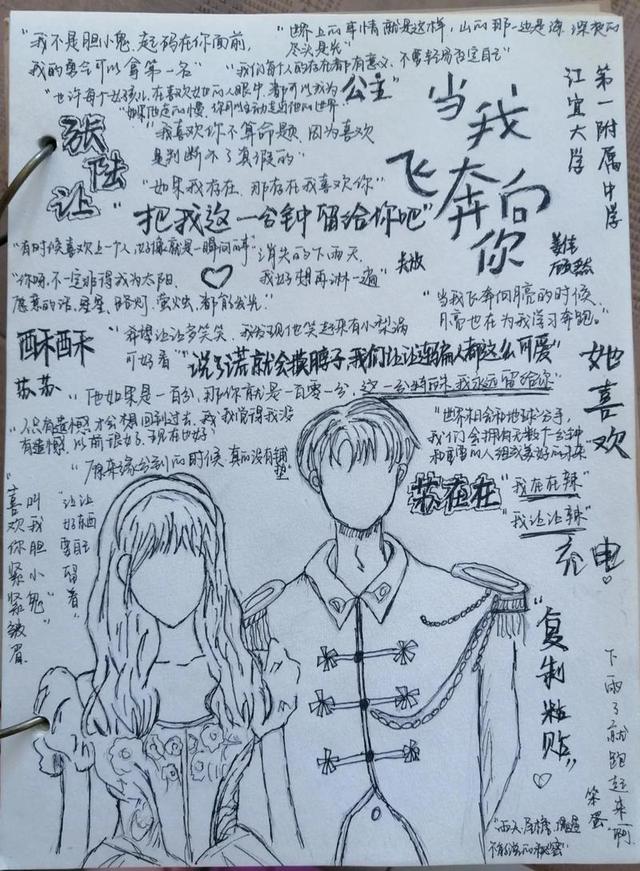 "我不是胆小鬼,起码在你面前,
我的勇气可以拿第一名"
"世界上的事情就是这样,山的那一边是海,深夜的
尽头是光"
"我们每个人的存在都有意义,不要轻易否定自己"
"也许每个女孩儿,在喜欢她的人眼中,都可以成为
公主"
的慢,你可以主动走进他的世界
"我喜欢你不算命题,因为喜欢
是判断不了真假的"
"如果我存在,那存在我喜欢你"
张陆让
当我飞奔向你
第一附属中学
江宜大学
"把我这一分钟留给你吧"
"有时候喜欢上一个人,好像就是一瞬间的事"
消失的下雨天,
我好想再淋一遍"
姜佳
顾然
"你呀,不一定非得成为太阳.
愿意的话,星星,路灯,萤火虫,都能发光."
"当我飞奔向月亮的时候,
月亮也在为我学习奔跑。"
酥酥
苏苏
"希望让让多笑笑,我发现他笑起来有小梨涡
可好看"
"说了谎就会摸脖子,我们让让连骗人都这么可爱"
"他如果是一百分,那你就是一百零一分,这一分特殊,我永远留给你"
她喜欢
"人只有遗憾,才会想回到过去,我觉得我没
有遗憾,以前很好,现在也好"
"世界
我们会拥有无数个一分钟
"原来缘分到的时候,真的没有铺
垫"
苏在在
"我在在辣"
"我让让辣"
充电
"喜欢你
叫我胆小鬼
紧紧皱眉
"让让
好东西
要自己
留着"
"复制粘贴"
下雨了就跑起来啊,
笨蛋
"雨天,屋檐,